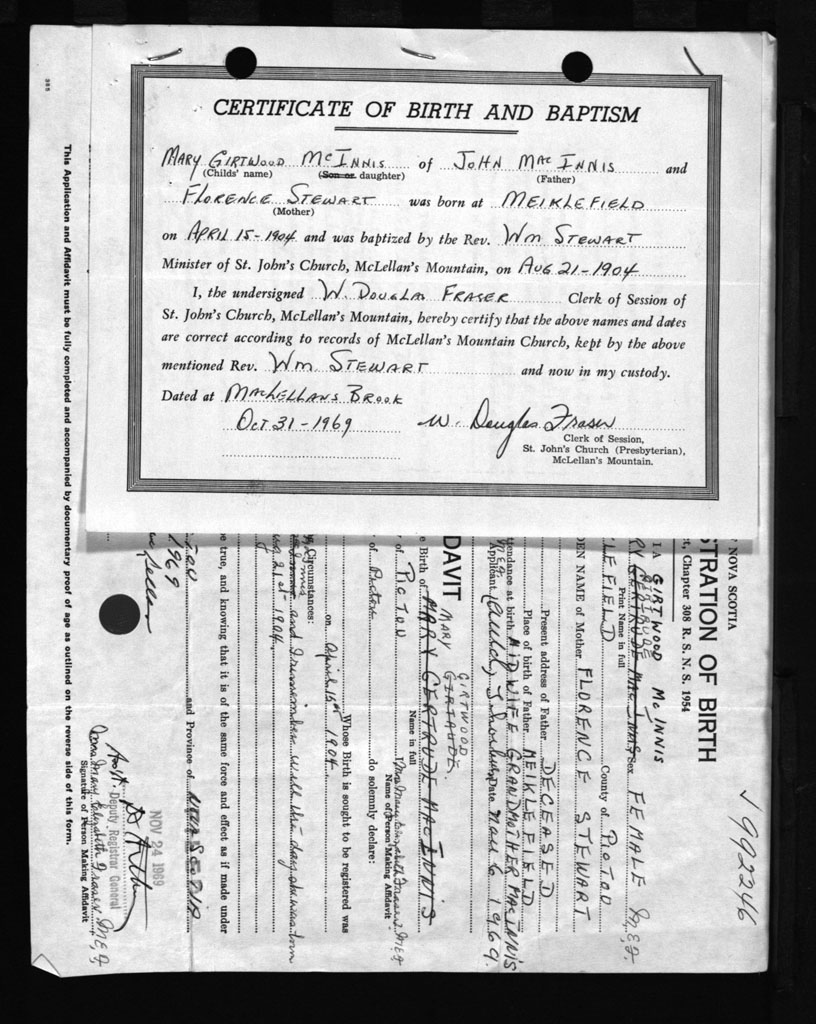 CERTIFICATE OF BIRTH AND BAPTISM
MARY GIRTWOOD McINNIS of JOHN MACINNIS and
(Childs' name) (Son or daughter) (Father)
FLORENCE STEWART was born at MEIKLEFIELD
(Mother)
on APRIL 15-1904 and was baptized by the Rev. WM STEWART
Minister of St. John's Church, McLellan's Mountain, on AUG 21-1904
I, the undersigned W. DOUGLAS FRASER Clerk of Session of
St. John's Church, McLellan's Mountain, hereby certify that the above names and dates
are correct according to records of McLellan's Mountain Church, kept by the above
mentioned Rev. WM STEWART and now in my custody.
Dated at MACLELLANS BROOK
OCT 31-1969 W. Douglas Fraser
Clerk of Session,
St. John's Church (Presbyterian),
McLellan's Mountain.
√ 992246
NOVA SCOTIA
STRATION OF BIRTH
t, Chapter 308 R. S. N. S. 1954
GIRTWOOD McINNIS
GERTRUDE
RY GERTRUDE MACINNIS Sex FEMALE M.E.F.
Print Name in full
LEFIELD County of PICTOU
DEN NAME of Mother FLORENCE STEWART
Present address of Father DECEASED
Place of birth of Father MEIKLEFIELD
ttendance at birth MIDWIFE GRANDMOTHER MACINNIS
M.E.F.
Applicant Date Nov 6 1969
DAVIT
MARY GIRTWOOD
GIRTRUDE
e Birth of MARY GERTRUDE MACINNIS
Name in full
of PICTOU Mrs Mary Elizabeth Fraser M.E.F.
Name of Person Making Affidavit
of Pictou do solemnly declare:
Whose Birth is sought to be registered was
on April 15th 1904.
g Circumstances:
McInnis
and I remember well the day she was born
Aug 21st 1904.
e true, and knowing that it is of the same force and effect as if made under
TOU and Province of NOVA SCOTIA
1969
NOV 24 1969
Deputy Registrar General
Mary Elizabeth Fraser M.E.F.
Signature of Person Making Affidavit
This Application and Affidavit must be fully completed and accompanied by documentary proof of age as outlined on the reverse side of this form.